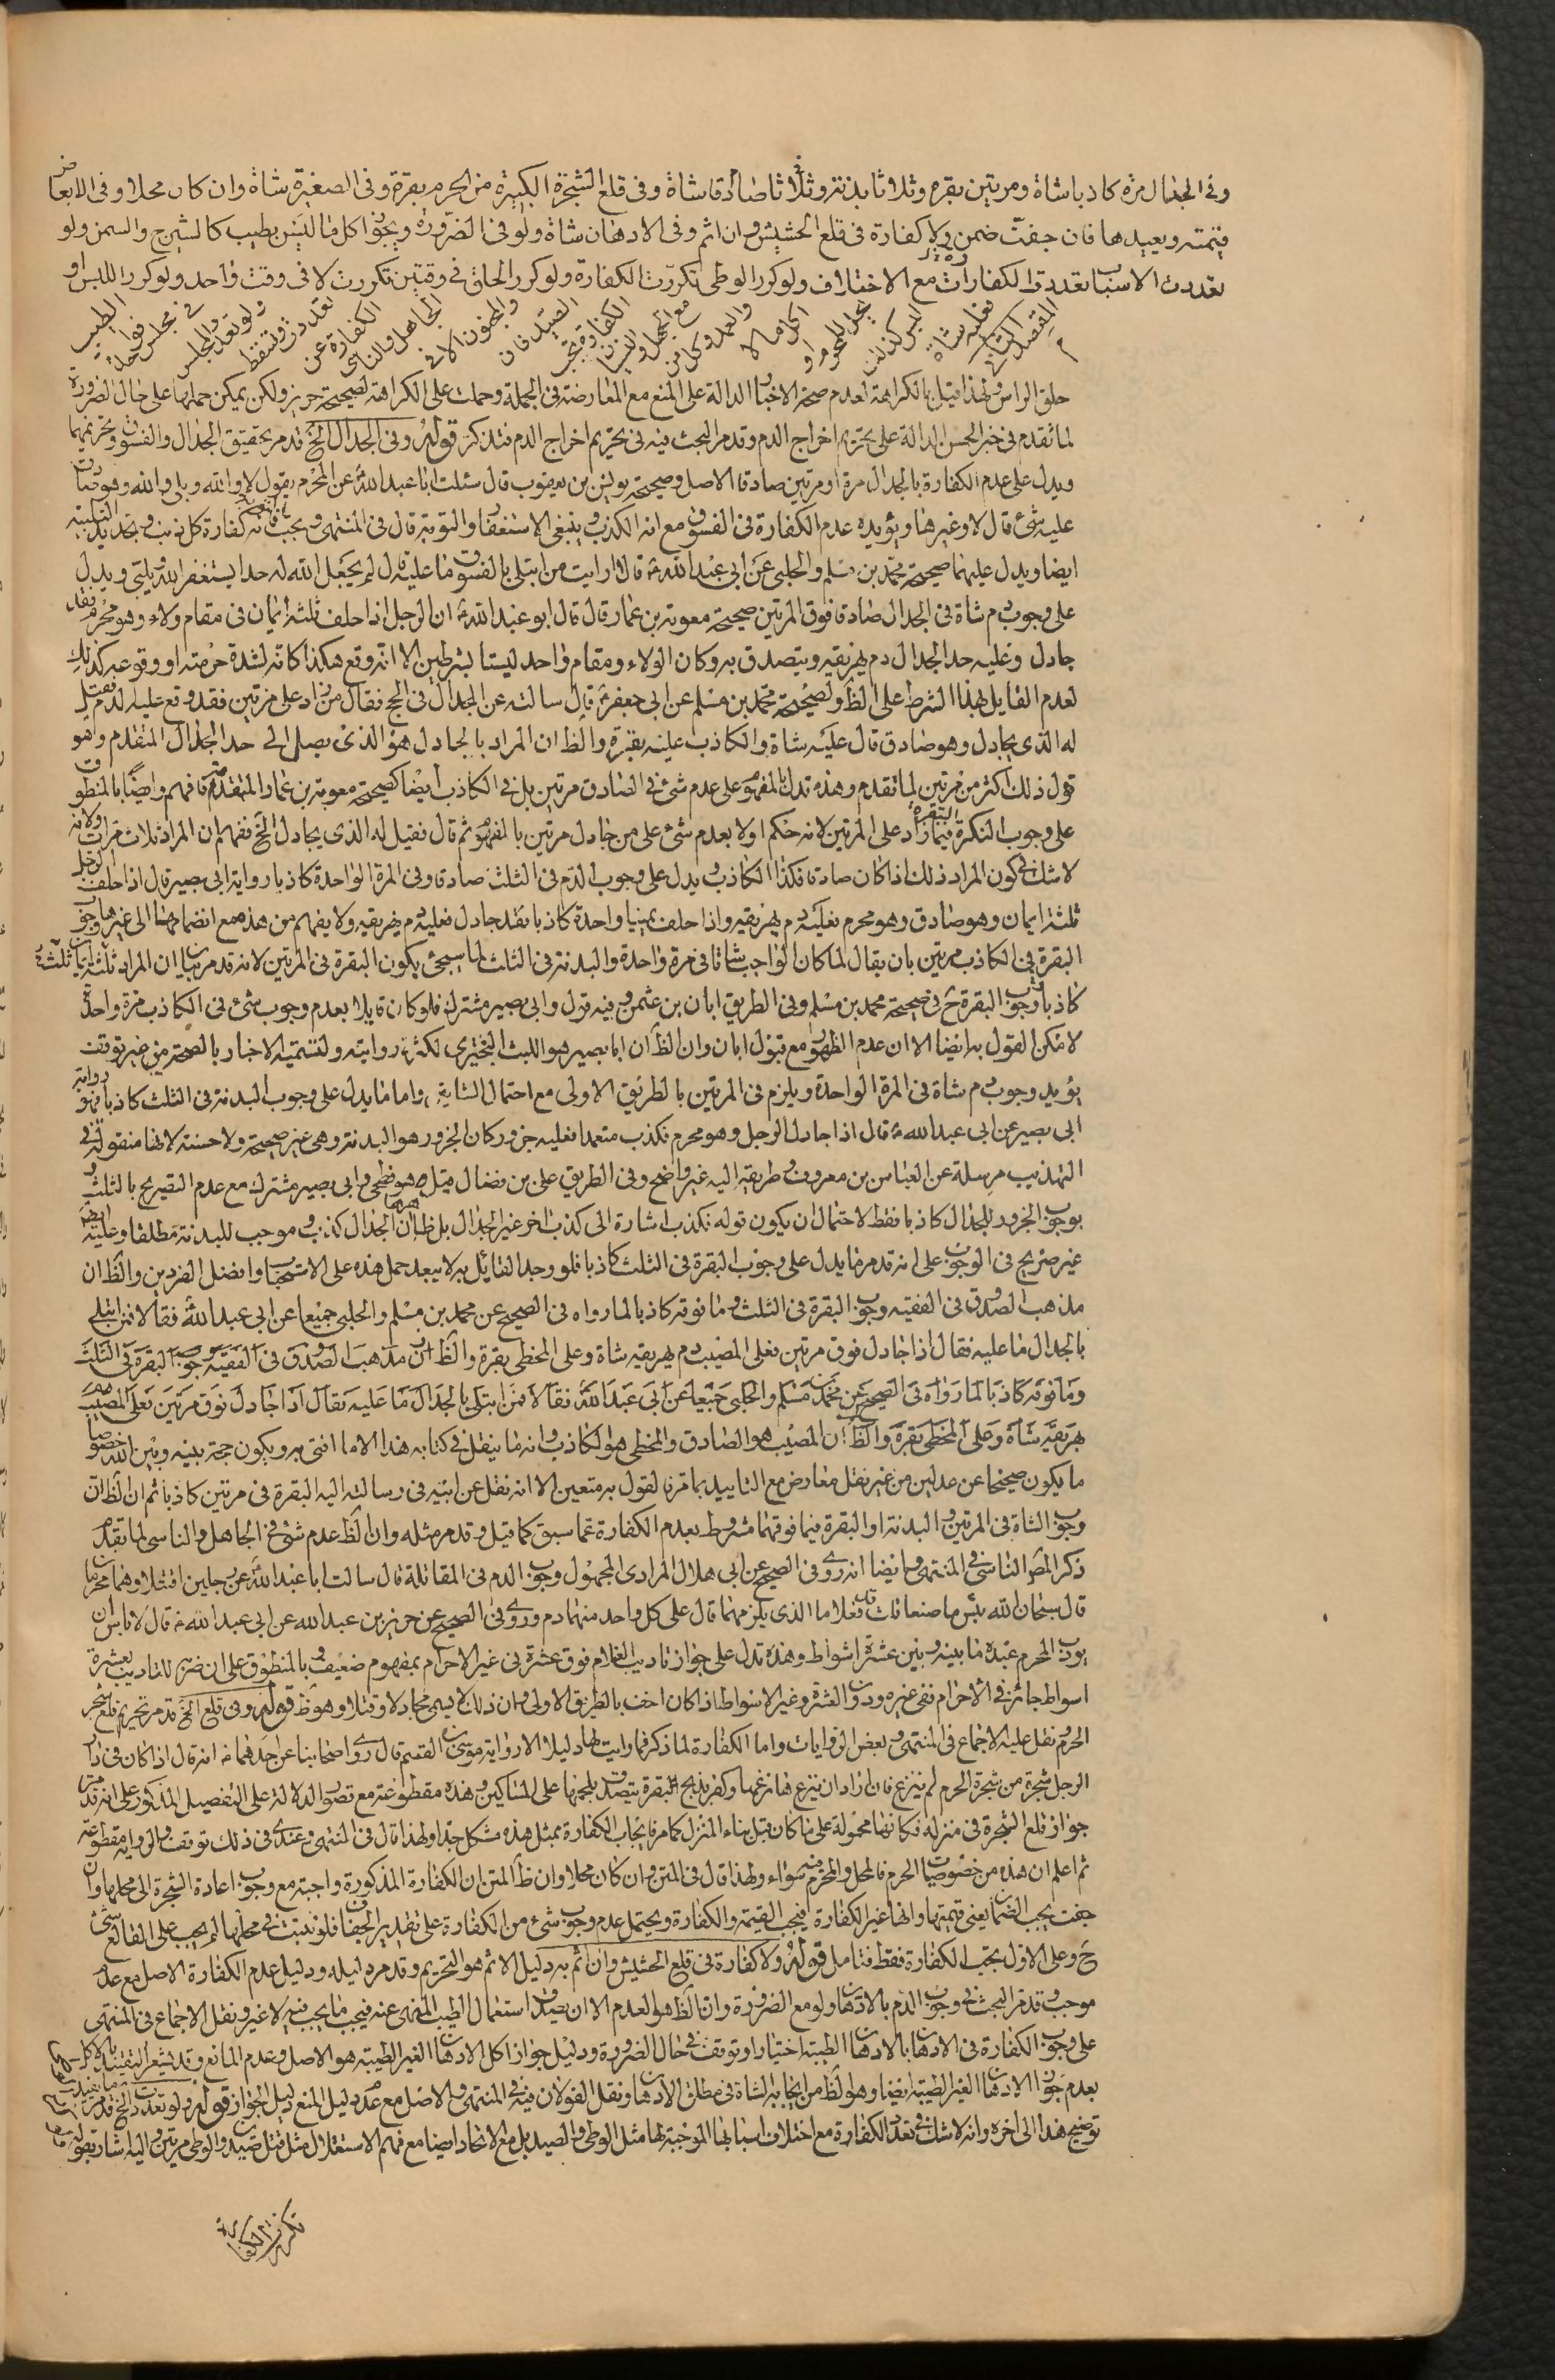 وفى الجدال مرة كاذبا شاة ومرتين بقرة وثلاثا بدنة وثلاثا صادقا شاة وفى قلع الشجرة الكبيرة من الحرم بقرة وفى الصغيرة شاة وان كان محلا وفى الابعاض
قيمته ويعيدها فان جفت ضمن ولا كفارة فى قلع الحشيش وان اثم وفى الادهان شاة ولو فى الضرورة ويجوز اكل ما ليس بطيب كالشيرج والسمن ولو
تعددت الاسباب تعددت الكفارات مع الاختلاف ولو كرر الوطى تكررت الكفارة ولو كرر الحلق فى وقتين تكررت لا فى وقت واحد ولو كرر اللبس او
الطيب فى مجلس
ولو تعدد المجلس تعددت وتسقط الكفارة عن الجاهل والناسى والمجنون الا فى الصيد فان الكفارة تجب مع الجهل والنسيان والعمد وكل من اكل ما لا يحل للمحرم او لبس كذلك فعليه شاة
حلق الراس ولهذا قيل بالكراهة لعدم صحة الاخبار الدالة على المنع مع المعارضة فى الجملة وحملت على الكراهة لصحيحة حريز ولكن يمكن حملها على حال الضرورة
لما تقدم فى خبر الحسن الدالة على تحريم اخراج الدم وقد مر البحث فيه فى تحريم اخراج الدم فتذكر قوله وفى الجدال الخ قد مر تحقيق الجدال والفسوق وتحريمهما
ويدل على عدم الكفارة بالجدال مرة او مرتين صادقا الاصل وصحيحة يونس بن يعقوب قال سئلت ابا عبد الله عن المحرم يقول لا والله وبلى والله وهو صادق
عليه شئ قال لا وغيرها ويؤيده عدم الكفارة فى الفسوق مع انه الكذب وينبغى الاستغفار والتوبة قال فى المنتهى ويجب فانه كفارة كل ذنب وتجديد التلبية
ايضا ويدل عليهما صحيحة محمد بن مسلم والحلبى عن ابى عبد الله ع قالا ارايت من ابتلى بالفسوق ما عليه قال لم يجعل الله له حدا يستغفر الله ويلبى ويدل
على وجوب دم شاة فى الجدال صادقا فوق المرتين صحيحة معوية بن عمار قال قال ابو عبد الله ع ان الرجل اذا حلف ثلثة ايمان فى مقام ولاء وهو محرم فقد
جادل وعليه حد الجدال دم يهريقه ويتصدق به وكان الولاء ومقام واحد ليستا بشرطين الا انه وقع هكذا كانه لشدة حرمته او وقوعه كذلك
لعدم القايل بهذا الشرط على الظ ولصحيحة محمد بن مسلم عن ابى جعفر ع قال سالته عن الجدال فى الحج فقال من زاد على مرتين فقد وقع عليه الدم فقيل
له الذى يجادل وهو صادق قال عليه شاة والكاذب عليه بقرة والظ ان المراد بالجادل هو الذى يصل الى حد الجدال المتقدم وهو
قول ذلك اكثر من مرتين لما تقدم وهذه تدل بالمفهوم على عدم شئ فى الصادق مرتين بل فى الكاذب ايضا كصحيحة معوية بن عمار المتقدمة فافهم وايضا بالمنطوق
على وجوب البقرة فيما زاد على المرتين لانه حكم اولا بعدم شئ على من جادل مرتين بالمفهوم ثم قال فقيل له الذى يجادل الخ فيفهم ان المراد ثلاث مرات ولانه
لا شك فى كون المراد ذلك اذا كان صادقا فكذا الكاذب ويدل على وجوب الدم فى الثلث صادقا وفى المرة الواحدة كاذبا رواية ابى بصير قال اذا حلف الرجل
ثلثة ايمان وهو صادق وهو محرم فعليه دم يهريقه واذا حلف يمينا واحدة كاذبا فقد جادل فعليه دم يهريقه ولا يفهم من هذه مع انضمامها الى غيرها وجوب
البقرة فى الكاذب مرتين بان يقال لما كان الواجب شاتا فى مرة واحدة والبدنة فى الثلث لما سيجئ يكون البقرة فى المرتين لانه قد مر بيان ان المراد ثلثة ايمان ثلثة
كاذبا وجوب البقرة ح فى صحيحة محمد بن مسلم وفى الطريق ابان بن عثمن وفيه قول وابى بصير مشترك فلو كان قايلا بعدم وجوب شئ فى الكاذب مرة واحدة
لامكن القول به ايضا الا ان عدم الظهور مع قبول ابان وان الظ ان ابا بصير هو الليث البخترى لكثرة روايته ولتسميته الاخبار بالصحة من غير توقف
يؤيد وجوب دم شاة فى المرة الواحدة ويلزم فى المرتين بالطريق الاولى مع احتمال الشاتين واما ما يدل على وجوب البدنة فى الثلث كاذبا فهو رواية
ابى بصير عن ابى عبد الله ع قال اذا جادل الرجل وهو محرم فكذب متعمدا فعليه جزور كان الجزور هو البدنة وهى غير صحيحة ولا حسنة لانها منقولة فى
التهذيب مرسلة عن العباس بن معروف وطريقه اليه غير واضح وفى الطريق على بن فضال قيل هو فطحى وابى بصير مشترك مع عدم التصريح بالثلث و
بوجوب الجزور للجدال كاذبا فقط لاحتمال ان يكون قوله فكذب اشارة الى كذب اخر غير الجدال بل ظاهرها ان الجدال كذب وموجب للبدنة مطلقا وعليه ايضا
غير صريح فى الوجوب على انه قد مر ما يدل على وجوب البقرة فى الثلث كاذبا فلو وجد القائل به لا يبعد حمل هذه على الاستحباب وافضل الفردين والظ ان
مذهب الصدوق فى الفقيه وجوب البقرة فى الثلث وما فوقه كاذبا لما رواه فى الصحيح عن محمد بن مسلم والحلبى جميعا عن ابى عبد الله فقالا فمن ابتلى
بالجدال ما عليه فقال اذا جادل فوق مرتين فعلى المصيب دم يهريقه شاة وعلى المخطى بقرة والظ ان مذهب الصدوق فى الفقيه وجوب البقرة فى الثلث
وما فوقه كاذبا لما رواه فى الصحيح عن محمد بن مسلم والحلبى جميعا عن ابى عبد الله فقالا فمن ابتلى بالجدال ما عليه فقال اذا جادل فوق مرتين فعلى المصيب دم
يهريقه شاة وعلى المخطى بقرة والظ ان المصيب هو الصادق والمخطى هو الكاذب وانه ما ينقل فى كتابه هذا الا ما افتى به ويكون حجة بينه وبين الله خصوصا
ما يكون صحيحا عن عدلين من غير نقل معارض مع التاييد بما مر فالقول به متعين الا انه نقل عن ابيه فى رسالته اليه البقرة فى مرتين كاذبا ثم ان الظ ان
وجوب الشاة فى المرتين والبدنة او البقرة فيما فوقهما مشروط بعدم الكفارة عما سبق كما قيل وقد مر مثله وان الظ عدم شئ فى الجاهل والناسى لما تقدم
ذكر المص الناسى فى المنتهى وايضا انه روى فى الصحيح عن ابى هلال المرادى المجهول وجوب الدم فى المقاتلة قال سالت ابا عبد الله عن رجلين اقتتلا وهما محرمان
قال سبحان الله بئس ما صنعا قلت قد فعلا ما الذى يلزمهما قال على كل واحد منهما دم وروى فى الصحيح عن حريز بن عبد الله عن ابى عبد الله ع قال لا باس ان
يؤدب المحرم عبده ما بينه وبين عشرة اسواط وهذه تدل على جواز تاديب الغلام فوق عشرة فى غير الاحرام بمفهوم ضعيف وبالمنطوق على ان ضربه للتاديب بعشرة
اسواط جائز فى الاحرام ففى غيره ودون العشرة وغير الاسواط اذا كان اخف بالطريق الاولى وان ذلك لا يسمى مجادلا وقتلا وهو ظ قوله وفى قلع الخ قد مر تحريم قلع شجر
الحرم ونقل عليه الاجماع فى المنتهى وبعض الروايات واما الكفارة لما ذكر فما رايت لها دليلا الا رواية موسى بن القسم قال روى اصحابنا عن احدهما ع انه قال اذا كان فى دار
الرجل شجرة من شجرة الحرم لم تنزع فان اراد ان ينزع فما نزعها وكفر بذبح البقرة يتصدق بلحمها على المساكين وهذه مقطوعة مع قصور الدلالة على التفصيل المذكور على انه قد مر
جواز قلع الشجرة فى منزله فكانها محمولة على ما كان قبل بناء المنزل كما مر فايجاب الكفارة بمثل هذه مشكل جدا ولهذا قال فى المنتهى وعندى فى ذلك توقف والرواية مقطوعة
ثم اعلم ان هذه من خصوصيات الحرم فالمحل والمحرم فيه سواء ولهذا قال فى المتن وان كان محلا وان ظ المتن ان الكفارة المذكورة واجبة مع وجوب اعادة الشجرة الى محلها وان
جفت يجب الضمان يعنى قيمتها وانها غير الكفارة فيجب القيمة والكفارة ويحتمل عدم وجوب شئ من الكفارة على تقدير الجفاف فلو نبتت فى محلها لم يجب على القالع شئ
ح وعلى الاول يجب الكفارة فقط فتامل قوله ولا كفارة فى قلع الحشيش وان اثم به دليل الاثم هو التحريم وقد مر دليله ودليل عدم الكفارة الاصل مع عدم
موجب وقد مر البحث فى وجوب الدم بالادهان ولو مع الضرورة وان الظ هو العدم الا ان يصدق استعمال الطيب المنهى عنه فيجب ما يجب فيه لا غير ونقل الاجماع فى المنتهى
على وجوب الكفارة فى الادهان بالادهان الطيبة اختيارا وتوقف فى حال الضرورة ودليل جواز اكل الادهان الغير الطيبة هو الاصل وعدم المانع وقد يشعر التقييد بالاكل
بعدم جواز الادهان الغير الطيبة ايضا وهو الظ من ايجابه الشاة فى مطلق الادهان ونقل القولان فيه فى المنتهى والاصل مع عدم دليل المنع دليل الجواز قوله ولو تعددت الخ قد مر
توضيح هذا الى اخره وانه لا شك فى تعدد الكفارة مع اختلاف اسبابها الموجبة لها مثل الوطى والصيد بل مع الاتحاد ايضا مع فهم الاستقلال مثل قتل صيد والوطى مرتين واليه اشار بقوله
تكررت الكفارة